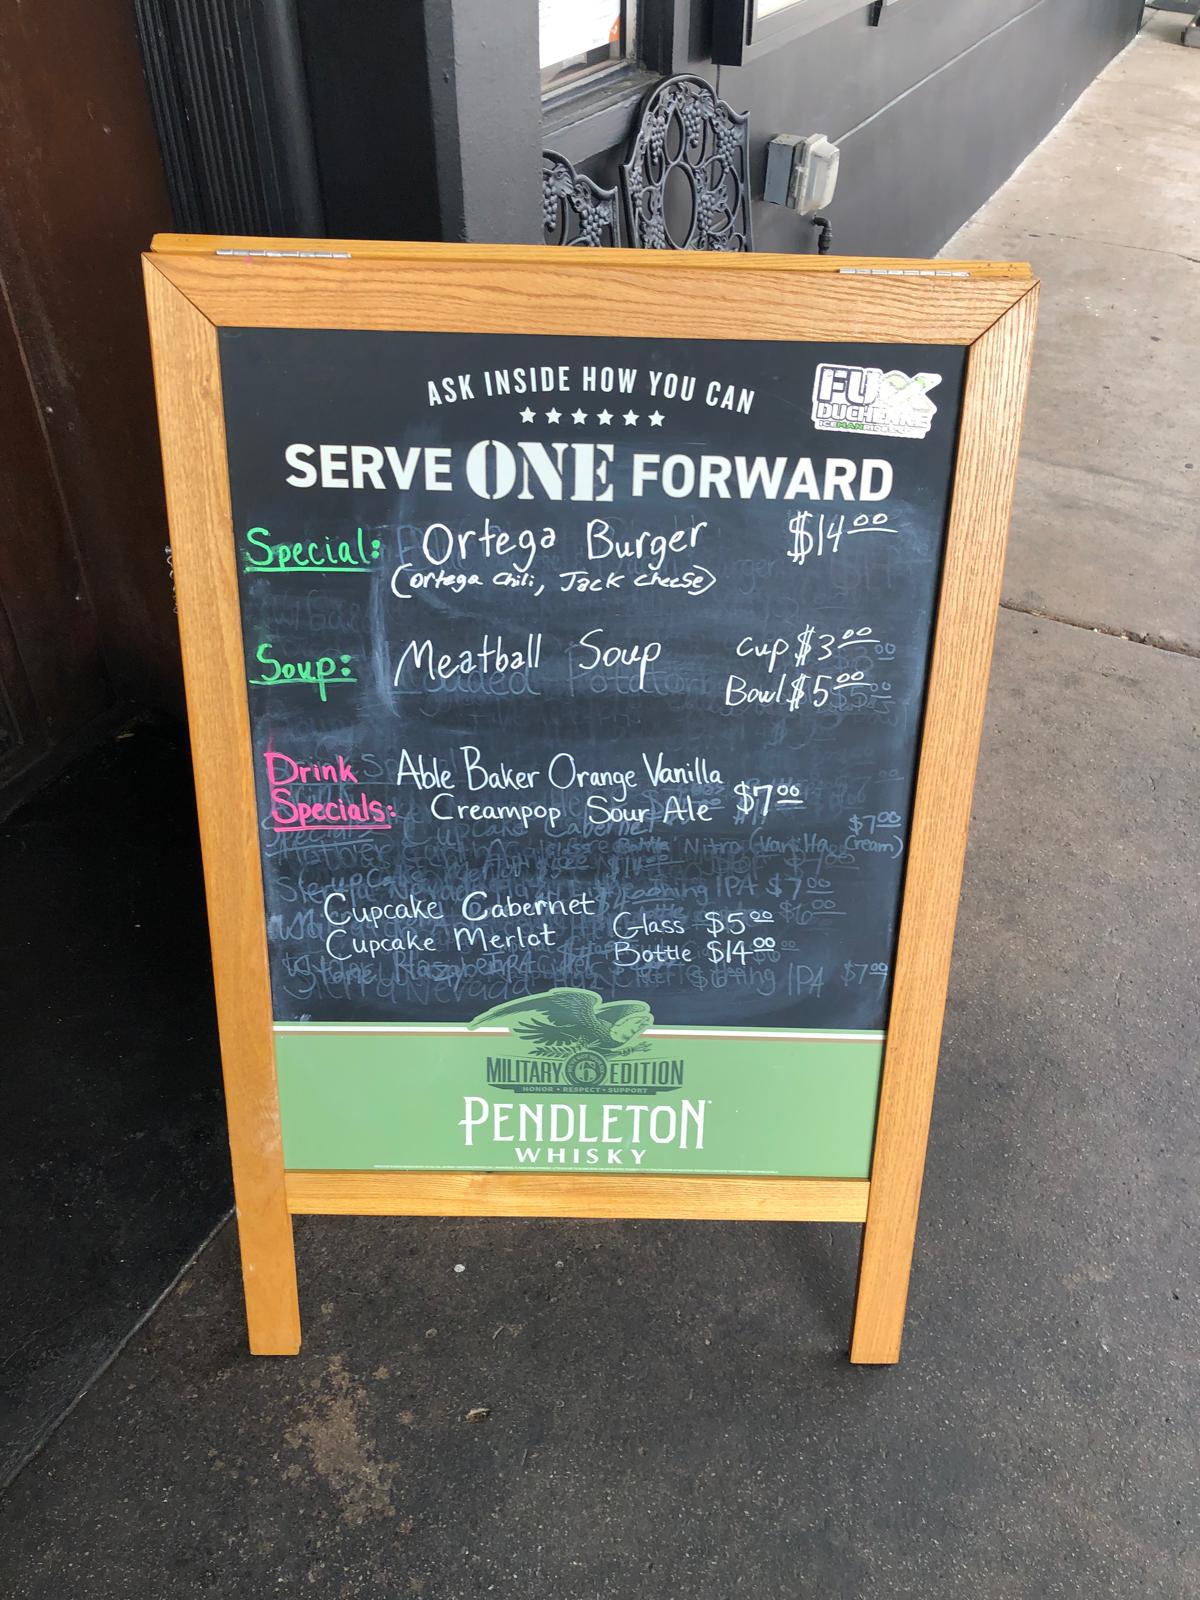 ASK INSIDE HOW YOU CAN
SERVE ONE FORWARD
DUCHENNE
Special: Ortega Burger $14.00
(Ortega Chili, Jack Cheese)
Soup: Meatball Soup Cup $3.00
Bowl $5.00
Drink Specials: Able Baker Orange Vanilla
Creampop Sour Ale $7.00
Cupcake Cabernet
Cupcake Merlot
Glass $5.00
Bottle $14.00
MILITARY 6 EDITION
HONOR • RESPECT • SUPPORT
PENDLETON
WHISKY